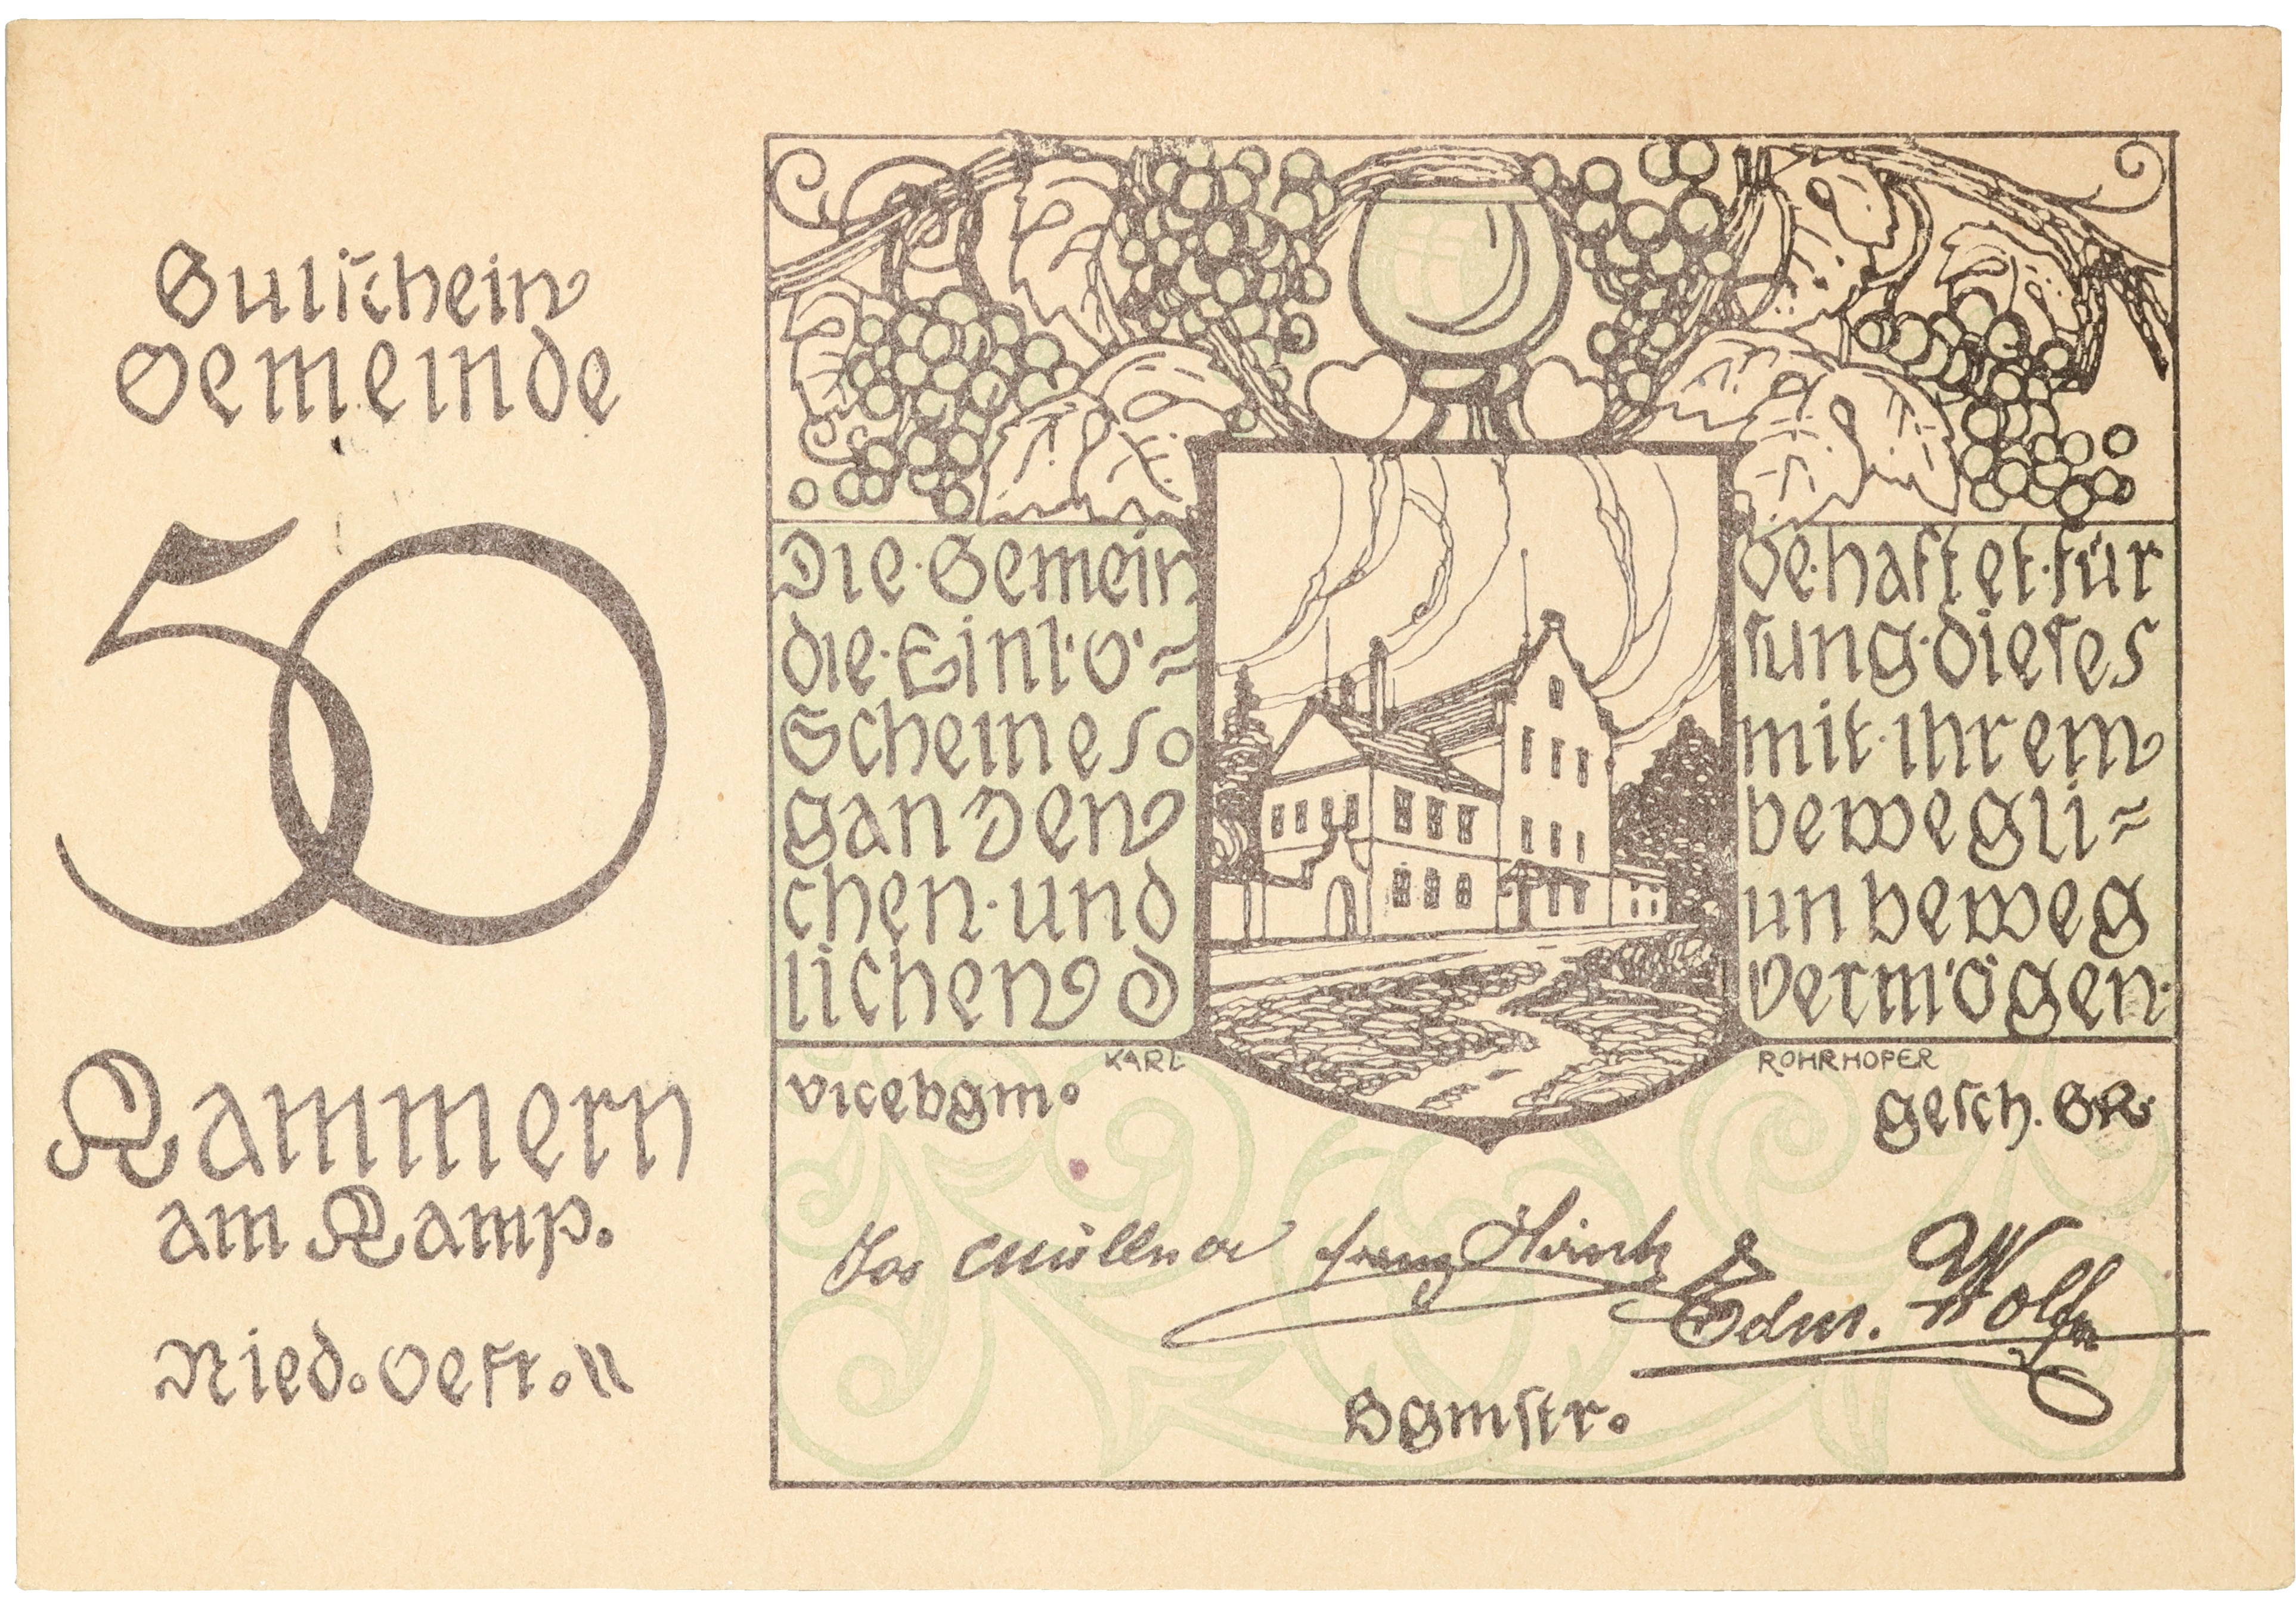 Gutschein
Gemeinde
50
Kammern
am Kamp.
Nied. Oestr.
Die·Gemein de·haftet·für
die·Einlö= sung·dieses
Scheines mit·ihrem
ganzen bewegli=
chen·und unbeweg
lichen Vermögen·
KARL ROHRHOFER
Vicebgm. gesch. GR.
Jos Müllner Franz Edm. Wolf
Bgmstr.